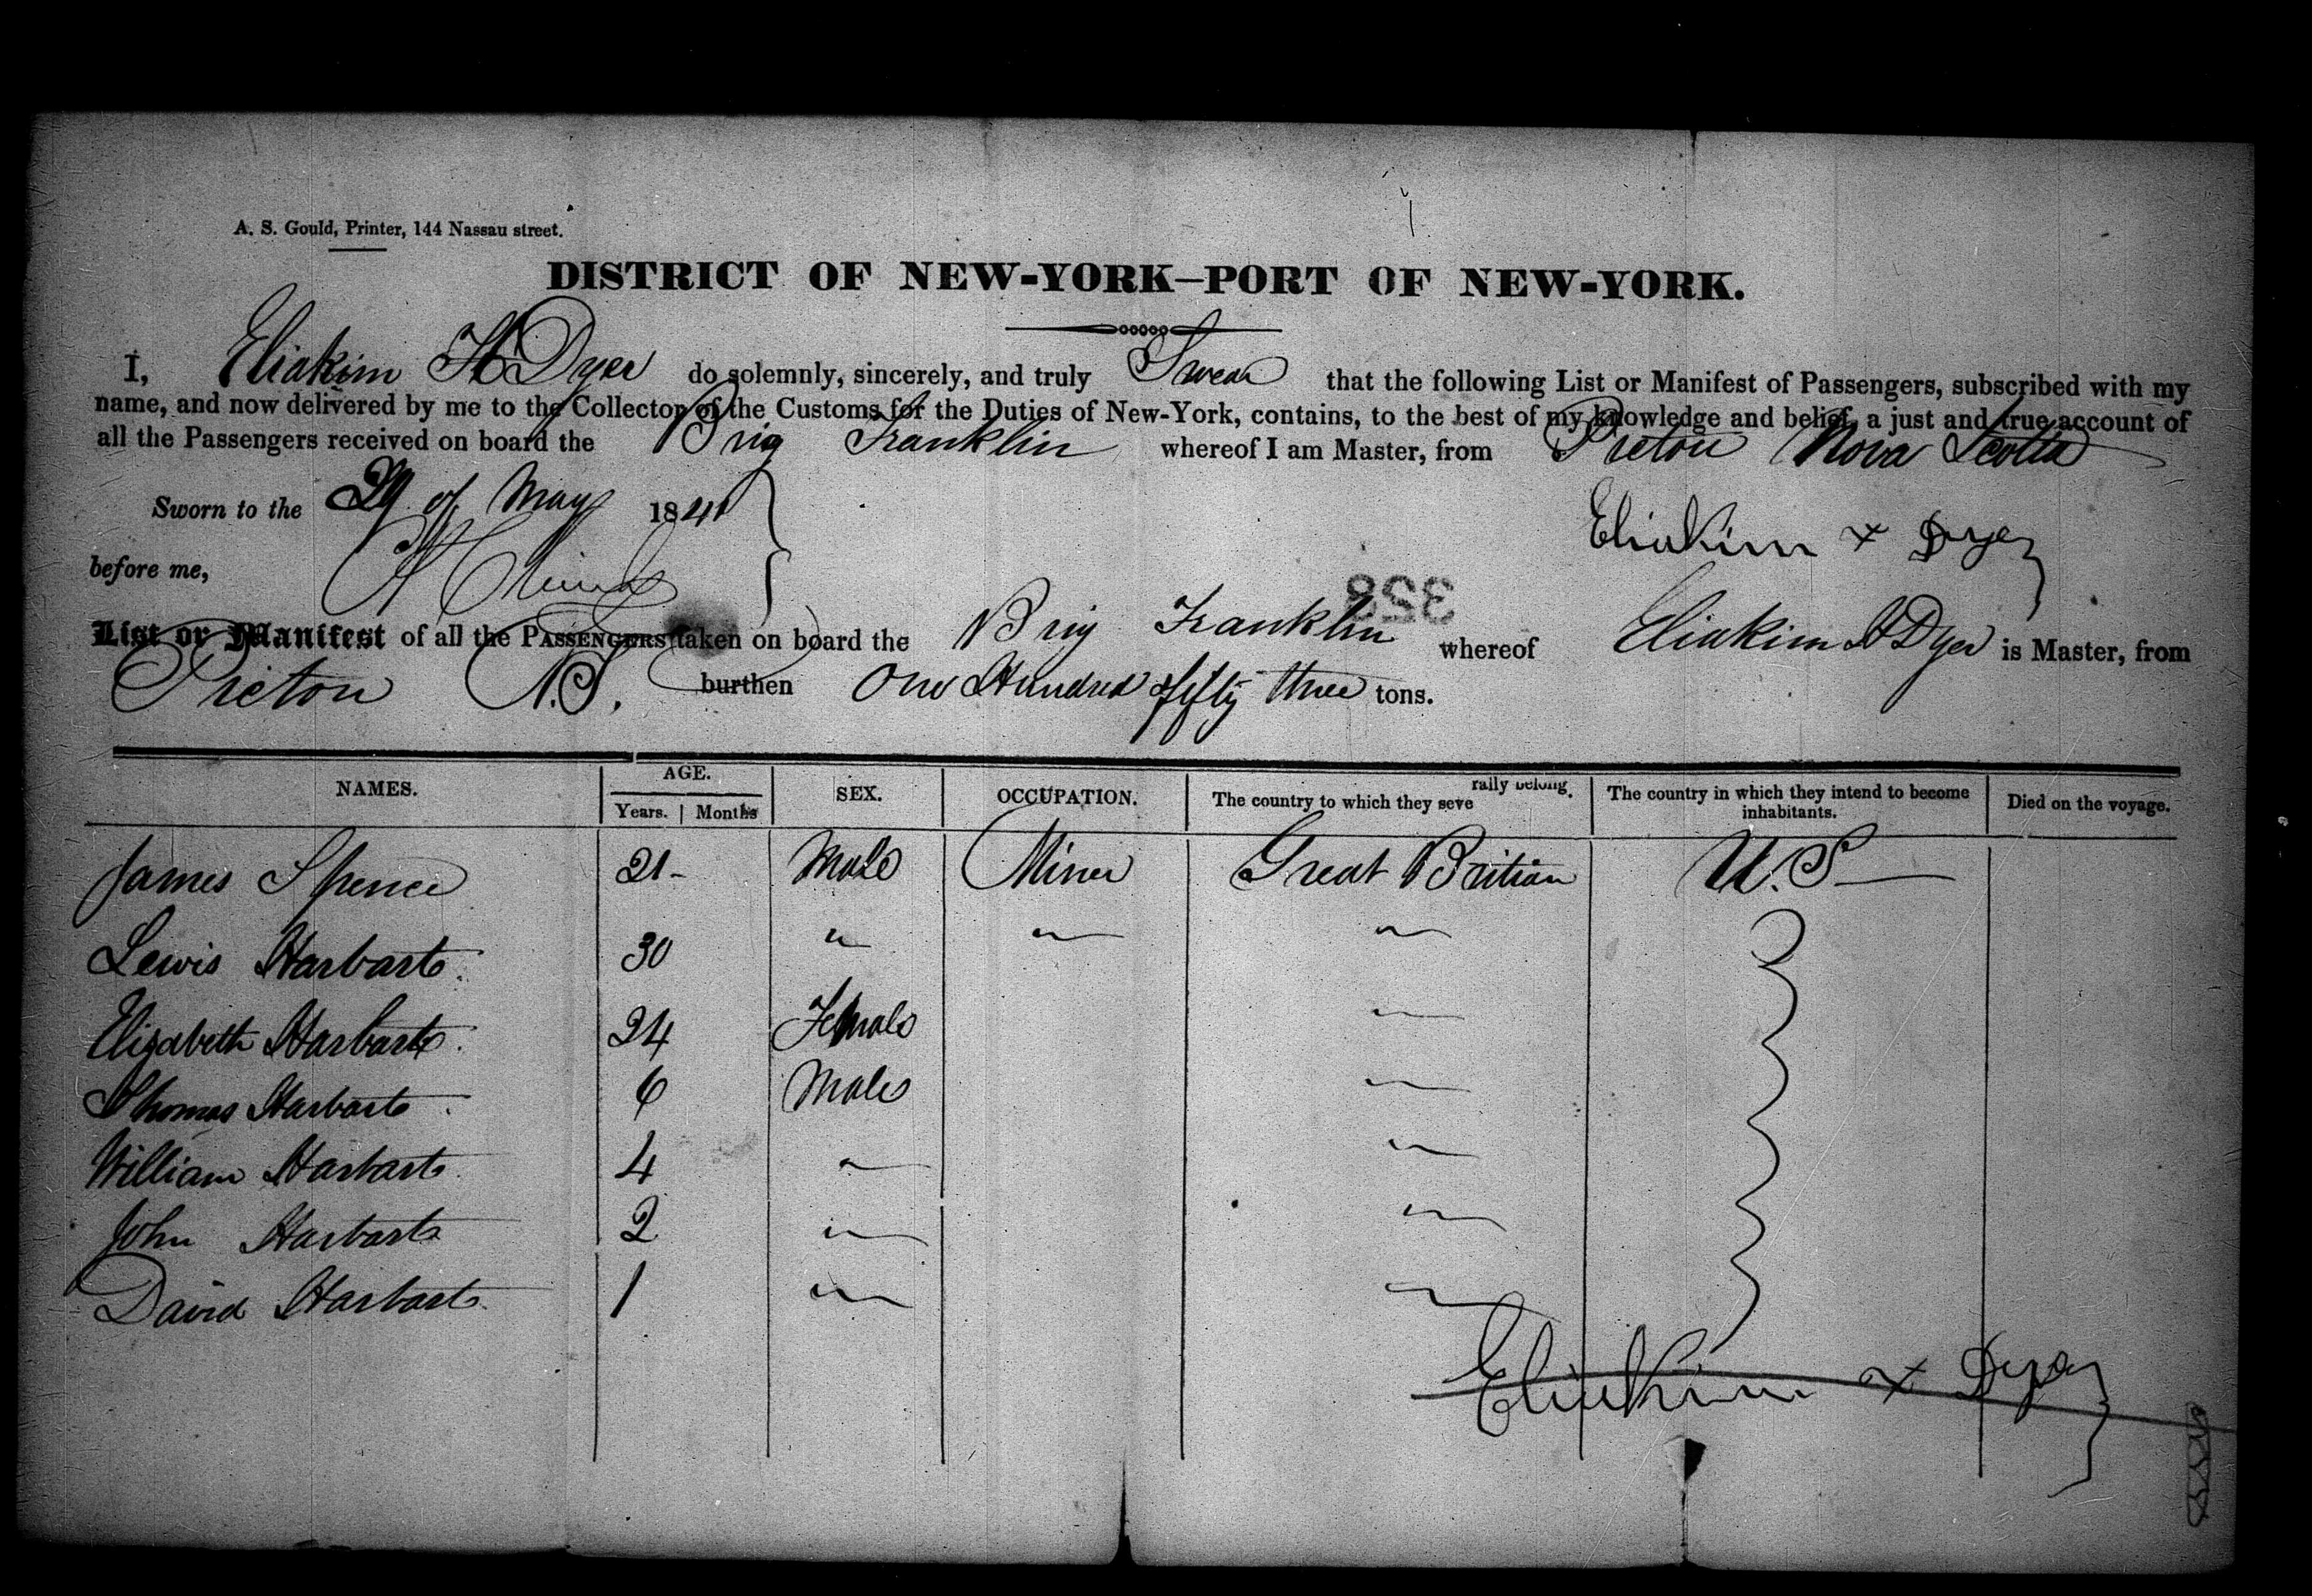 A. S. Gould, Printer, 144 Nassau street.
DISTRICT OF NEW-YORK—PORT OF NEW-YORK.
I, Eliakim H Dyer do solemnly, sincerely, and truly Swear that the following List or Manifest of Passengers, subscribed with my
name, and now delivered by me to the Collector of the Customs for the Duties of New-York, contains, to the best of my knowledge and belief, a just and true account of
all the Passengers received on board the Brig Franklin whereof I am Master, from Pictou Nova Scotia
Sworn to the 29 of May 1841
Eliakim + Dyer
before me,
328
List or Manifest of all the PASSENGERS taken on board the Brig Franklin whereof Eliakim H Dyer is Master, from
Pictou N.S. burthen One Hundred fifty three tons.
NAMES. AGE. SEX. OCCUPATION. The country to which they severally belong. The country in which they intend to become inhabitants. Died on the voyage.
Years. Months
James Spence 21- Male Miner Great Britian U.S
Lewis Harbart 30 " " "
Elizabeth Harbart 24 Female "
Thomas Harbart 6 Male "
William Harbart 4 " "
John Harbart 2 " "
David Harbart 1 " "
Eliakim + Dyer